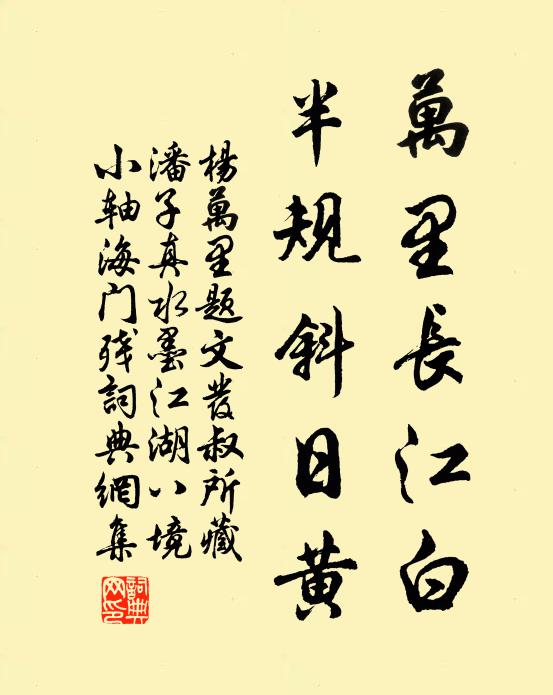 萬里長江白
半規斜日黃
楊萬里題文發叔所藏
潘子真水墨江湖八境
小軸海門殘詞典網集
詞典網印